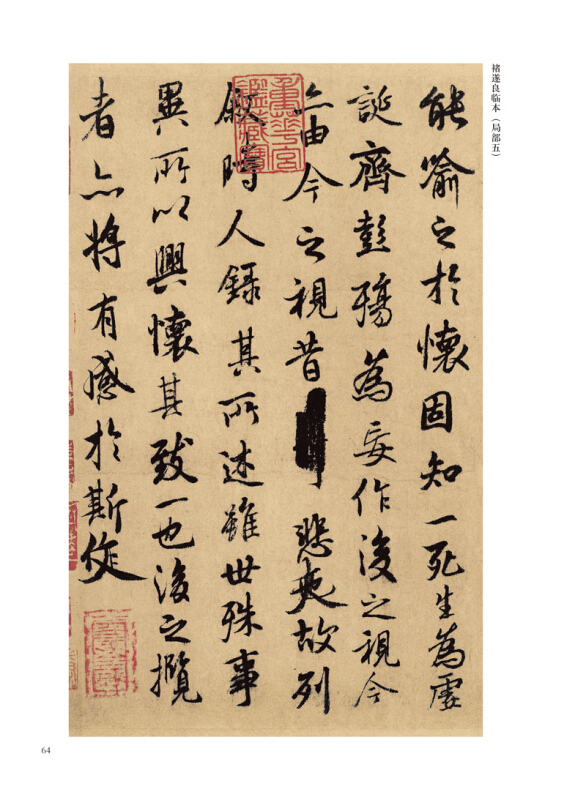 褚遂良临本（局部五）
能喻之於懷固知一死生為虛
誕齊彭殤為妄作後之視今
亦由今之視昔悲夫故列
敘時人錄其所述雖世殊事
異所以興懷其致一也後之攬
者亦將有感於斯作
64